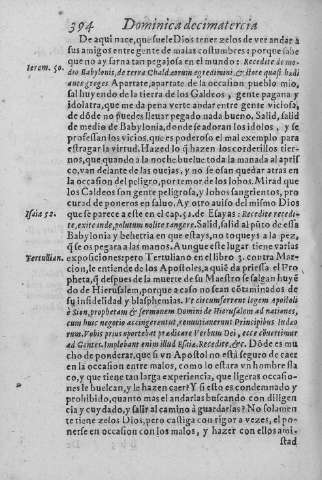 394 Dominica decimatercia
De aqui nace, que suele Dios tener zelos de ver andar à
sus amigos entre gente de malas costumbres: porque sabe
que no ay sarna tan pegajosa en el mundo: Recedite de me-
Ierem. 50.
dio Babylonis, de terra Chaldæorum egredimini, & estote quasi hædi
ante greges Apartate, apartate de la occasion pueblo mio,
sal huyendo de la tierra de los Caldeos, gente pagana y
idolatra, que me da pena verte andar entre gente viciosa,
de dõde no puedes lleuar pegado nada bueno. Salid, salid
de medio de Babylonia, donde se adoran los idolos, y se
professan los vicios, que es poderoso el mal exemplo para
estragar la virtud. Hazed lo q̃ hazen los corderillos tier-
nos, que quando a la noche buelue toda la manada al apris
co, van delante de las ouejas, y no se osan quedar atras en
la occasion del peligro, por temor de los lobos. Mirad que
los Caldeos son gente peligrosa, y lobos sangrientos, pro
curad de poneros en saluo. Ay otro auiso del mismo Dios
Esaia 52.
que se parece a este en el cap. 52. de Esayas: Recedite recedi-
te, exite inde, polutum nolite tangere. Salid, salid al pũto de essa
Babylonia y behetria en que estays, no toqueys a la pez,
q̃ se os pegara a las manos. Aunque este lugar tiene varias
Tertullian.
exposiciones: pero Tertuliano en el libro 3. contra Mar-
cion, le entiende de los Apostoles, a quiẽ da priessa el Pro
pheta, q̃ despues de la muerte de su Maestro se salgan huyẽ
do de Hierusalem, porque acaso no sean cõtaminados de
su infidelidad y blasphemias. Ve circumferrent legem Apostoli
è Sion, prophetam & sermonem Domini de Hierusalem ad nationes,
cum huic negotio accingerentur, renuntiauerunt Principibus Iudæo
rum. Vobis prius oportebat prædicare Verbum Dei, ecce
ad Gentes. Implebant enim illud Esaiæ. Recedite, &c. Dõde es mu
cho de ponderar, que si vn Apostol no està seguro de caer
en la occasion entre malos, como lo estara vn hombre fla
co, y que tiene tan larga experiencia, que ligeras occasio-
nes le buelcan, y le hazen caer? Y si esto es condemnado y
prohibido, quanto mas el andarlas buscando con diligen
cia y cuydado, y salir al camino à guardarlas? No solamen
te tiene zelos Dios, pero castiga con rigor a vezes, el po-
nerse en occasion con los malos, y hazer con ellos ami-
stad